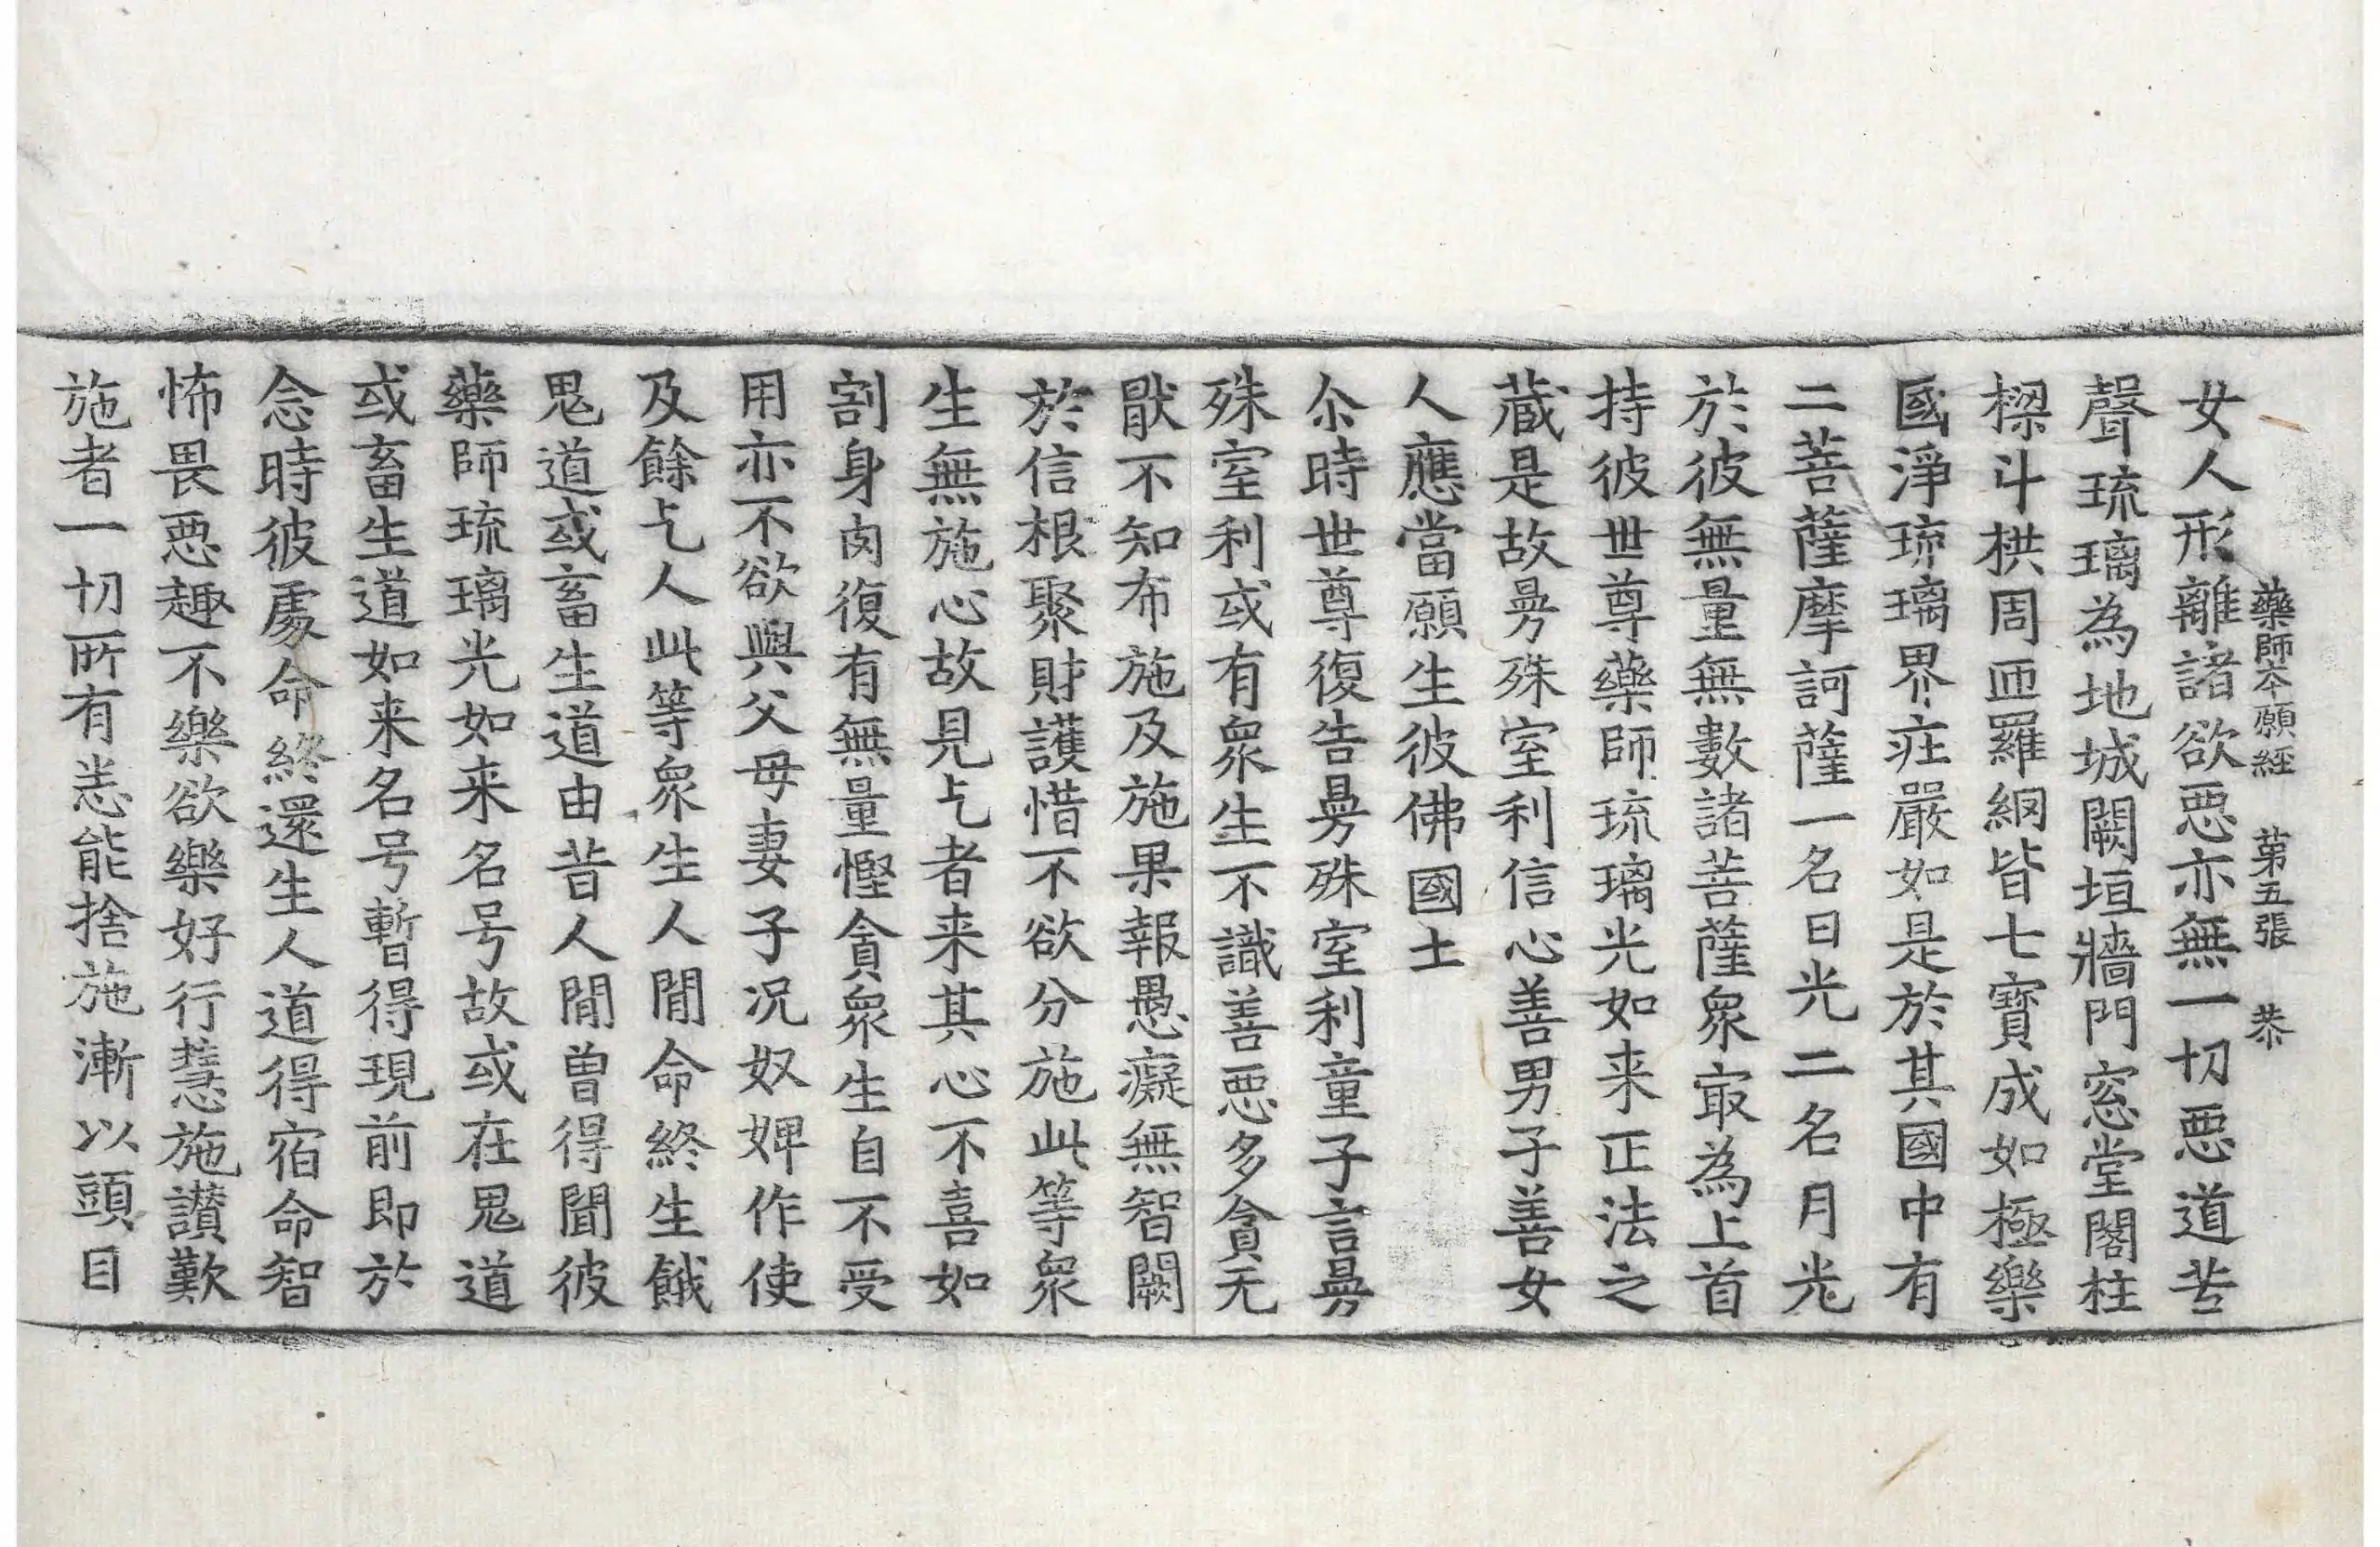 藥師本願經 第五張 㳟
女人形離諸欲惡亦無一切惡道苦
聲琉璃為地城闕垣牆門窓堂閣柱
樑斗栱周匝羅網皆七寶成如極樂
國淨琉璃界疰嚴如是於其國中有
二菩薩摩訶薩一名日光二名月光
於彼無量無數諸菩薩衆㝡為上首
持彼世尊藥師琉璃光如来正法之
蔵是故曼殊室利信心善男子善女
人應當願生彼佛國土
尒時世尊復告曼殊室利童子言曼
殊室利或有衆生不識善惡多貪无
猒不知布施及施果報愚癡無智闕
於信根聚財護惜不欲分施此等衆
生無施心故見乞者来其心不喜如
割身肉復有無量慳貪衆生自不受
用亦不欲與父母妻子况奴婢作使
及餘乞人此等衆生人閒命終生餓
鬼道或畜生道由昔人閒曽得聞彼
藥師琉璃光如来名号故或在鬼道
或畜生道如来名号暫得現前即於
念時彼處命終還生人道得宿命智
怖畏惡趣不樂欲樂好行慧施讃歎
施者一切所有悉能捨施漸以頭目